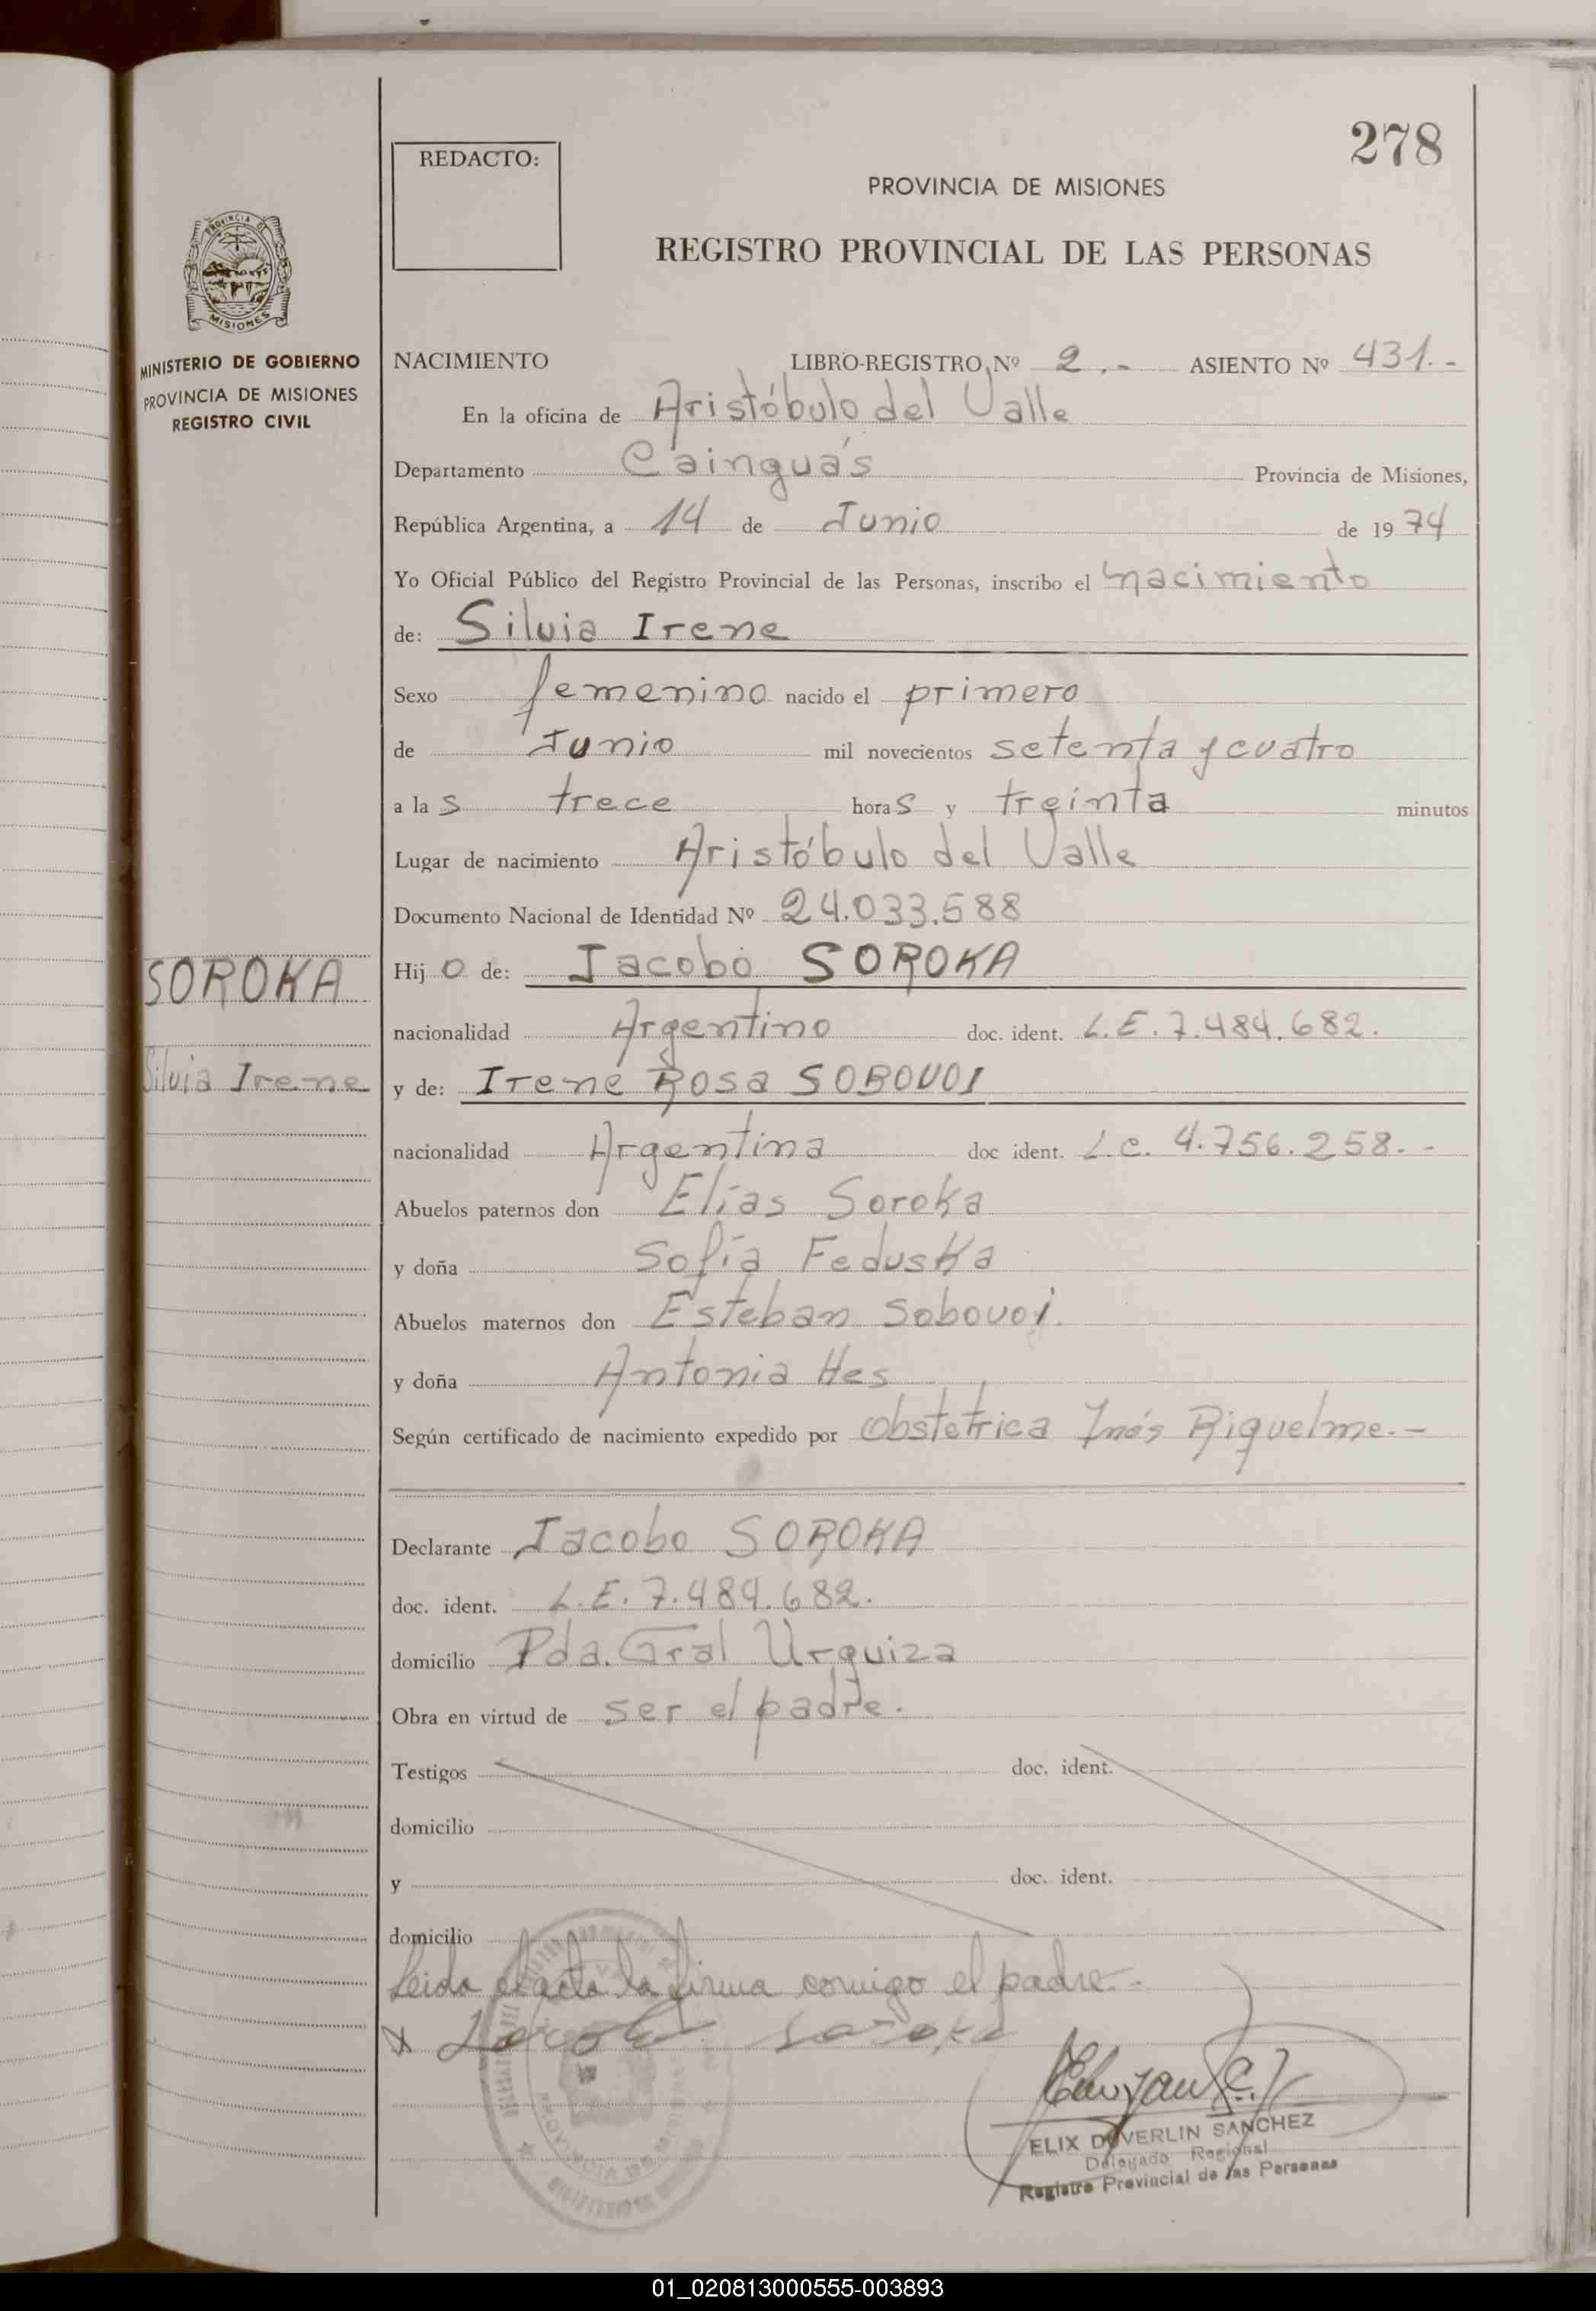 278
REDACTO:
PROVINCIA DE MISIONES
REGISTRO PROVINCIAL DE LAS PERSONAS
PROVINCIA DE
MISIONES
MINISTERIO DE GOBIERNO
PROVINCIA DE MISIONES
REGISTRO CIVIL
NACIMIENTO LIBRO-REGISTRO Nº 2.- ASIENTO Nº 431.-
En la oficina de Aristóbulo del Valle
Departamento Cainguás Provincia de Misiones,
República Argentina, a 14 de Junio de 1974
Yo Oficial Público del Registro Provincial de las Personas, inscribo el nacimiento
de: Silvia Irene
Sexo femenino nacido el primero
de Junio mil novecientos setenta y cuatro
a las trece horas y treinta minutos
Lugar de nacimiento Aristóbulo del Valle
Documento Nacional de Identidad Nº 24.033.588
Hijo de: Jacobo SOROKA
SOROKA
nacionalidad Argentino doc. ident. L.E. 7.484.682.
Silvia Irene
y de: Irene Rosa SOBOVOI
nacionalidad Argentina doc ident. L.C. 4.756.258.-
Abuelos paternos don Elías Soroka
y doña Sofía Feduska
Abuelos maternos don Esteban Sobovoi.
y doña Antonia Hes
Según certificado de nacimiento expedido por Obstetrica Inés Riquelme.-
Declarante Jacobo SOROKA
doc. ident. L.E. 7.484.682.
domicilio Pda. Gral Urquiza
Obra en virtud de ser el padre.
Testigos doc. ident.
domicilio
y doc. ident.
domicilio
Leida el acta la firma conmigo el padre.-
x Jacobo Soroka
ELIX DUVERLIN SANCHEZ
Delegado Regional
Registro Provincial de las Personas
PROVINCIA DE MISIONES
01_020813000555-003893